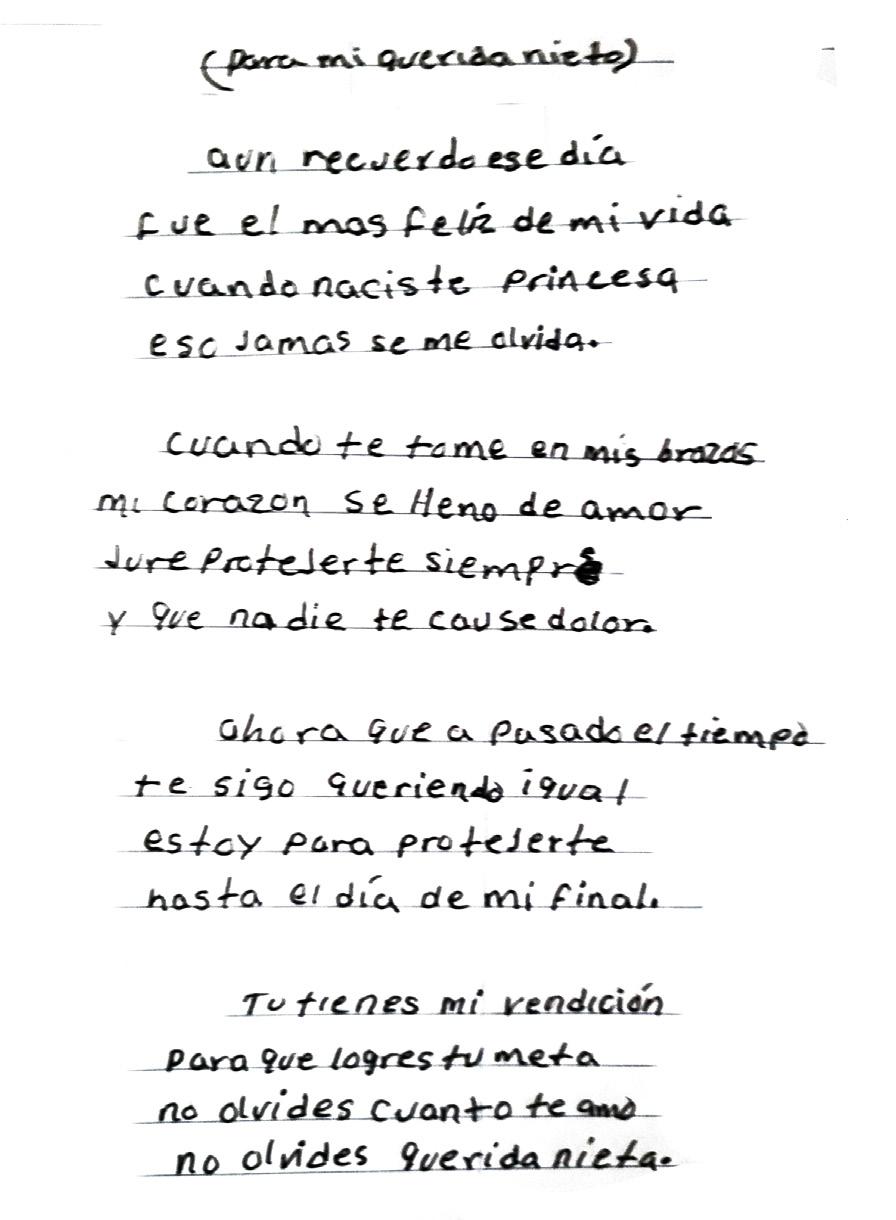 (para mi querida nieta)
aun recuerdo ese día
fue el mas feliz de mi vida
cuando naciste princesa
eso Jamas se me olvida.
cuando te tome en mis brazos
mi corazon se lleno de amor
Jure proteJerte siempre
y que nadie te cause dolor.
ahora que a pasado el tiempo
te sigo queriendo igual
estoy para proteJerte
hasta el día de mi final.
Tu tienes mi vendición
para que logres tu meta
no olvides cuanto te amo
no olvides querida nieta.